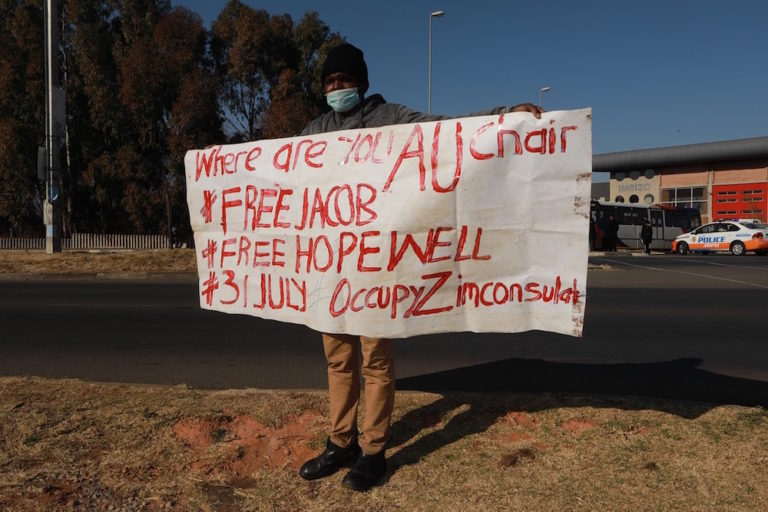 Where are you AU chair
#FREE JACOB
#FREE HOPEWELL
#31 JULY #OccupyZimconsulat
IMBIZO
POLICE